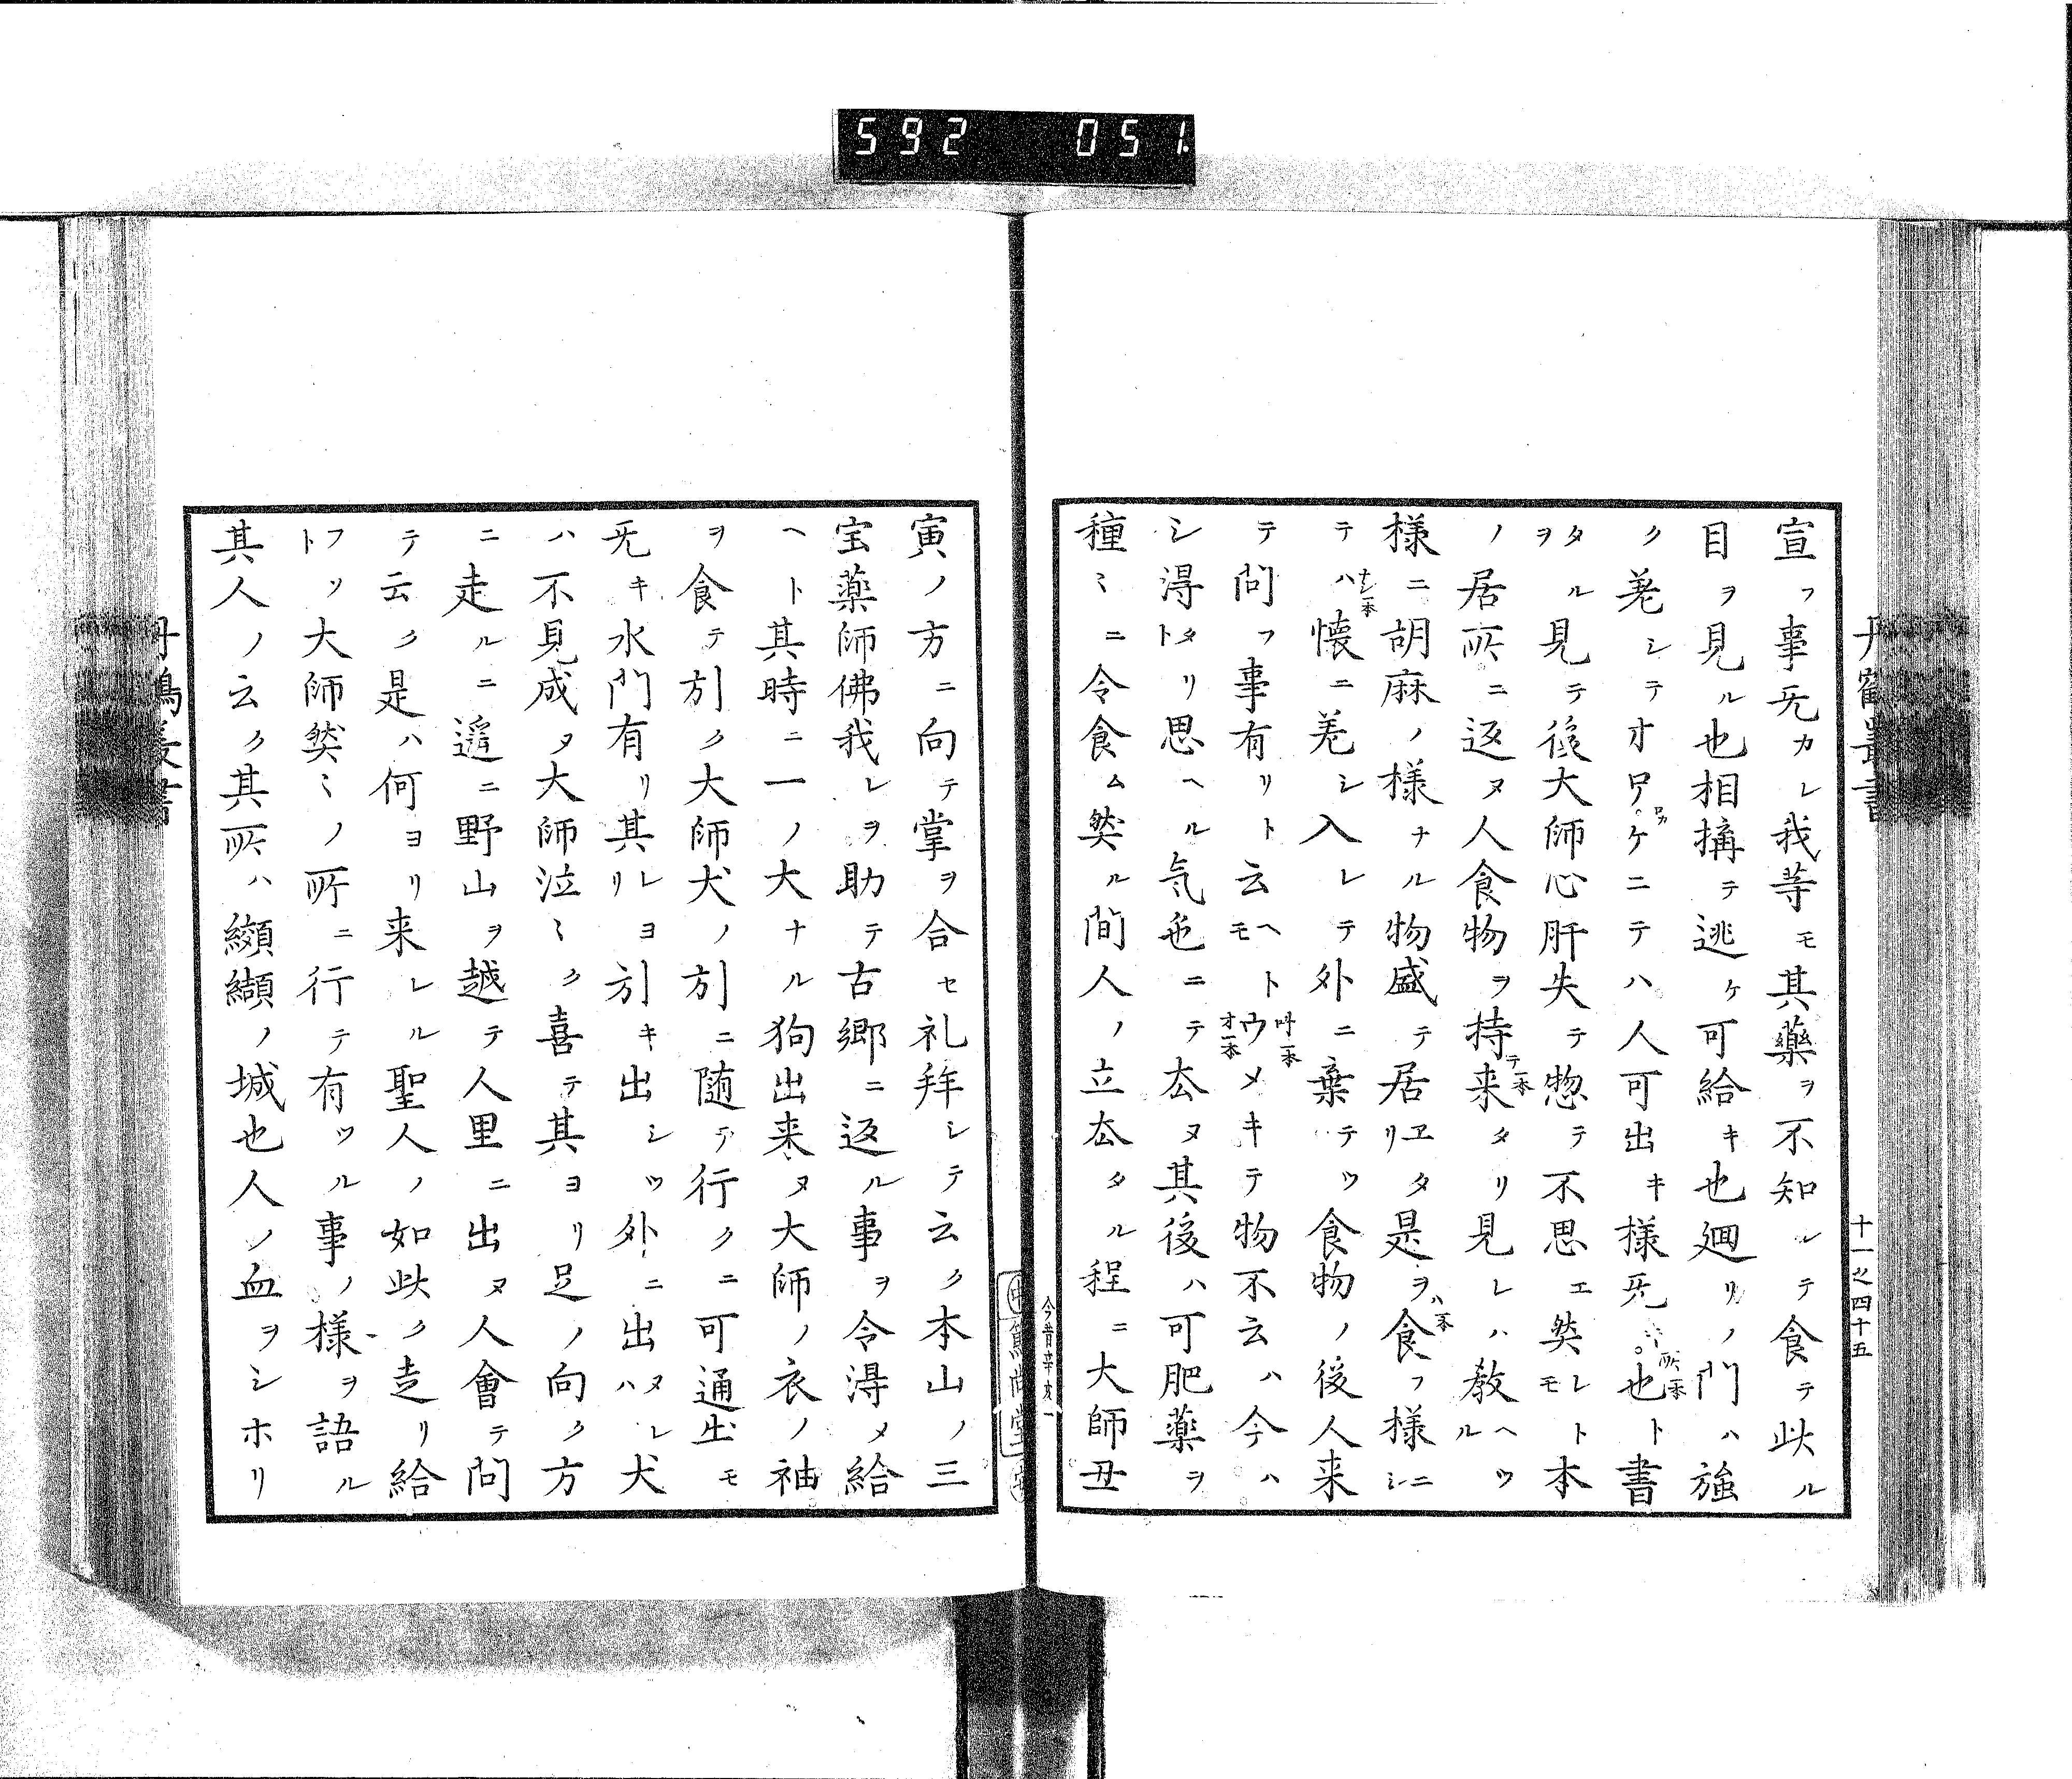 592 051
丹鶴叢書
十一之四十五
宣フ事旡カレ我等モ其藥ヲ不知ルテ食テ此ル
目ヲ見ル也相搆テ逃ケ可給キ也廻リノ門ハ強
ク差シテオケニテハ人可出キ様旡也ト書
タルヲ見テ後大師心肝失テ惣テ不思エ然レトモ本
ノ居所ニ返ヌ人食物ヲ持来タリ見レハ教ヘツル
様ニ胡麻ノ様ナル物盛テ居ヱタリ是ヲ食フ様ニシ
テハ懐ニ差シ入レテ外ニ棄テツ食物ノ後人来
テ問フ事有リト云ヘトモウメキテ物不云ハ今ハ
シ得タリト思ヘル気色ニテ厺ヌ其後ハ可肥薬ヲ
種〻ニ令食ム然ル間人ノ立厺タル程ニ大師丑
今昔辛亥一
寅ノ方ニ向テ掌ヲ合セ礼拜シテ云ク本山ノ三
宝薬師佛我レヲ助テ古郷ニ返ル事ヲ令得メ給
ヘト其時ニ一ノ大ナル狗出来ヌ大師ノ衣ノ袖
ヲ食テ引ク大師犬ノ引ニ随テ行クニ可通出モ
旡キ水門有リ其レヨリ引キ出シツ外ニ出ヌレハ犬
ハ不見成ヌ大師泣〻ク喜テ其ヨリ足ノ向ク方
ニ走ルニ遥ニ野山ヲ越テ人里ニ出ヌ人會テ問
テ云ク是ハ何ヨリ来レル聖人ノ如此ク走リ給
フソト大師然〻ノ所ニ行テ有ツル事ノ様ヲ語ル
其人ノ云ク其所ハ纐纈ノ城也人ノ血ヲシホリ